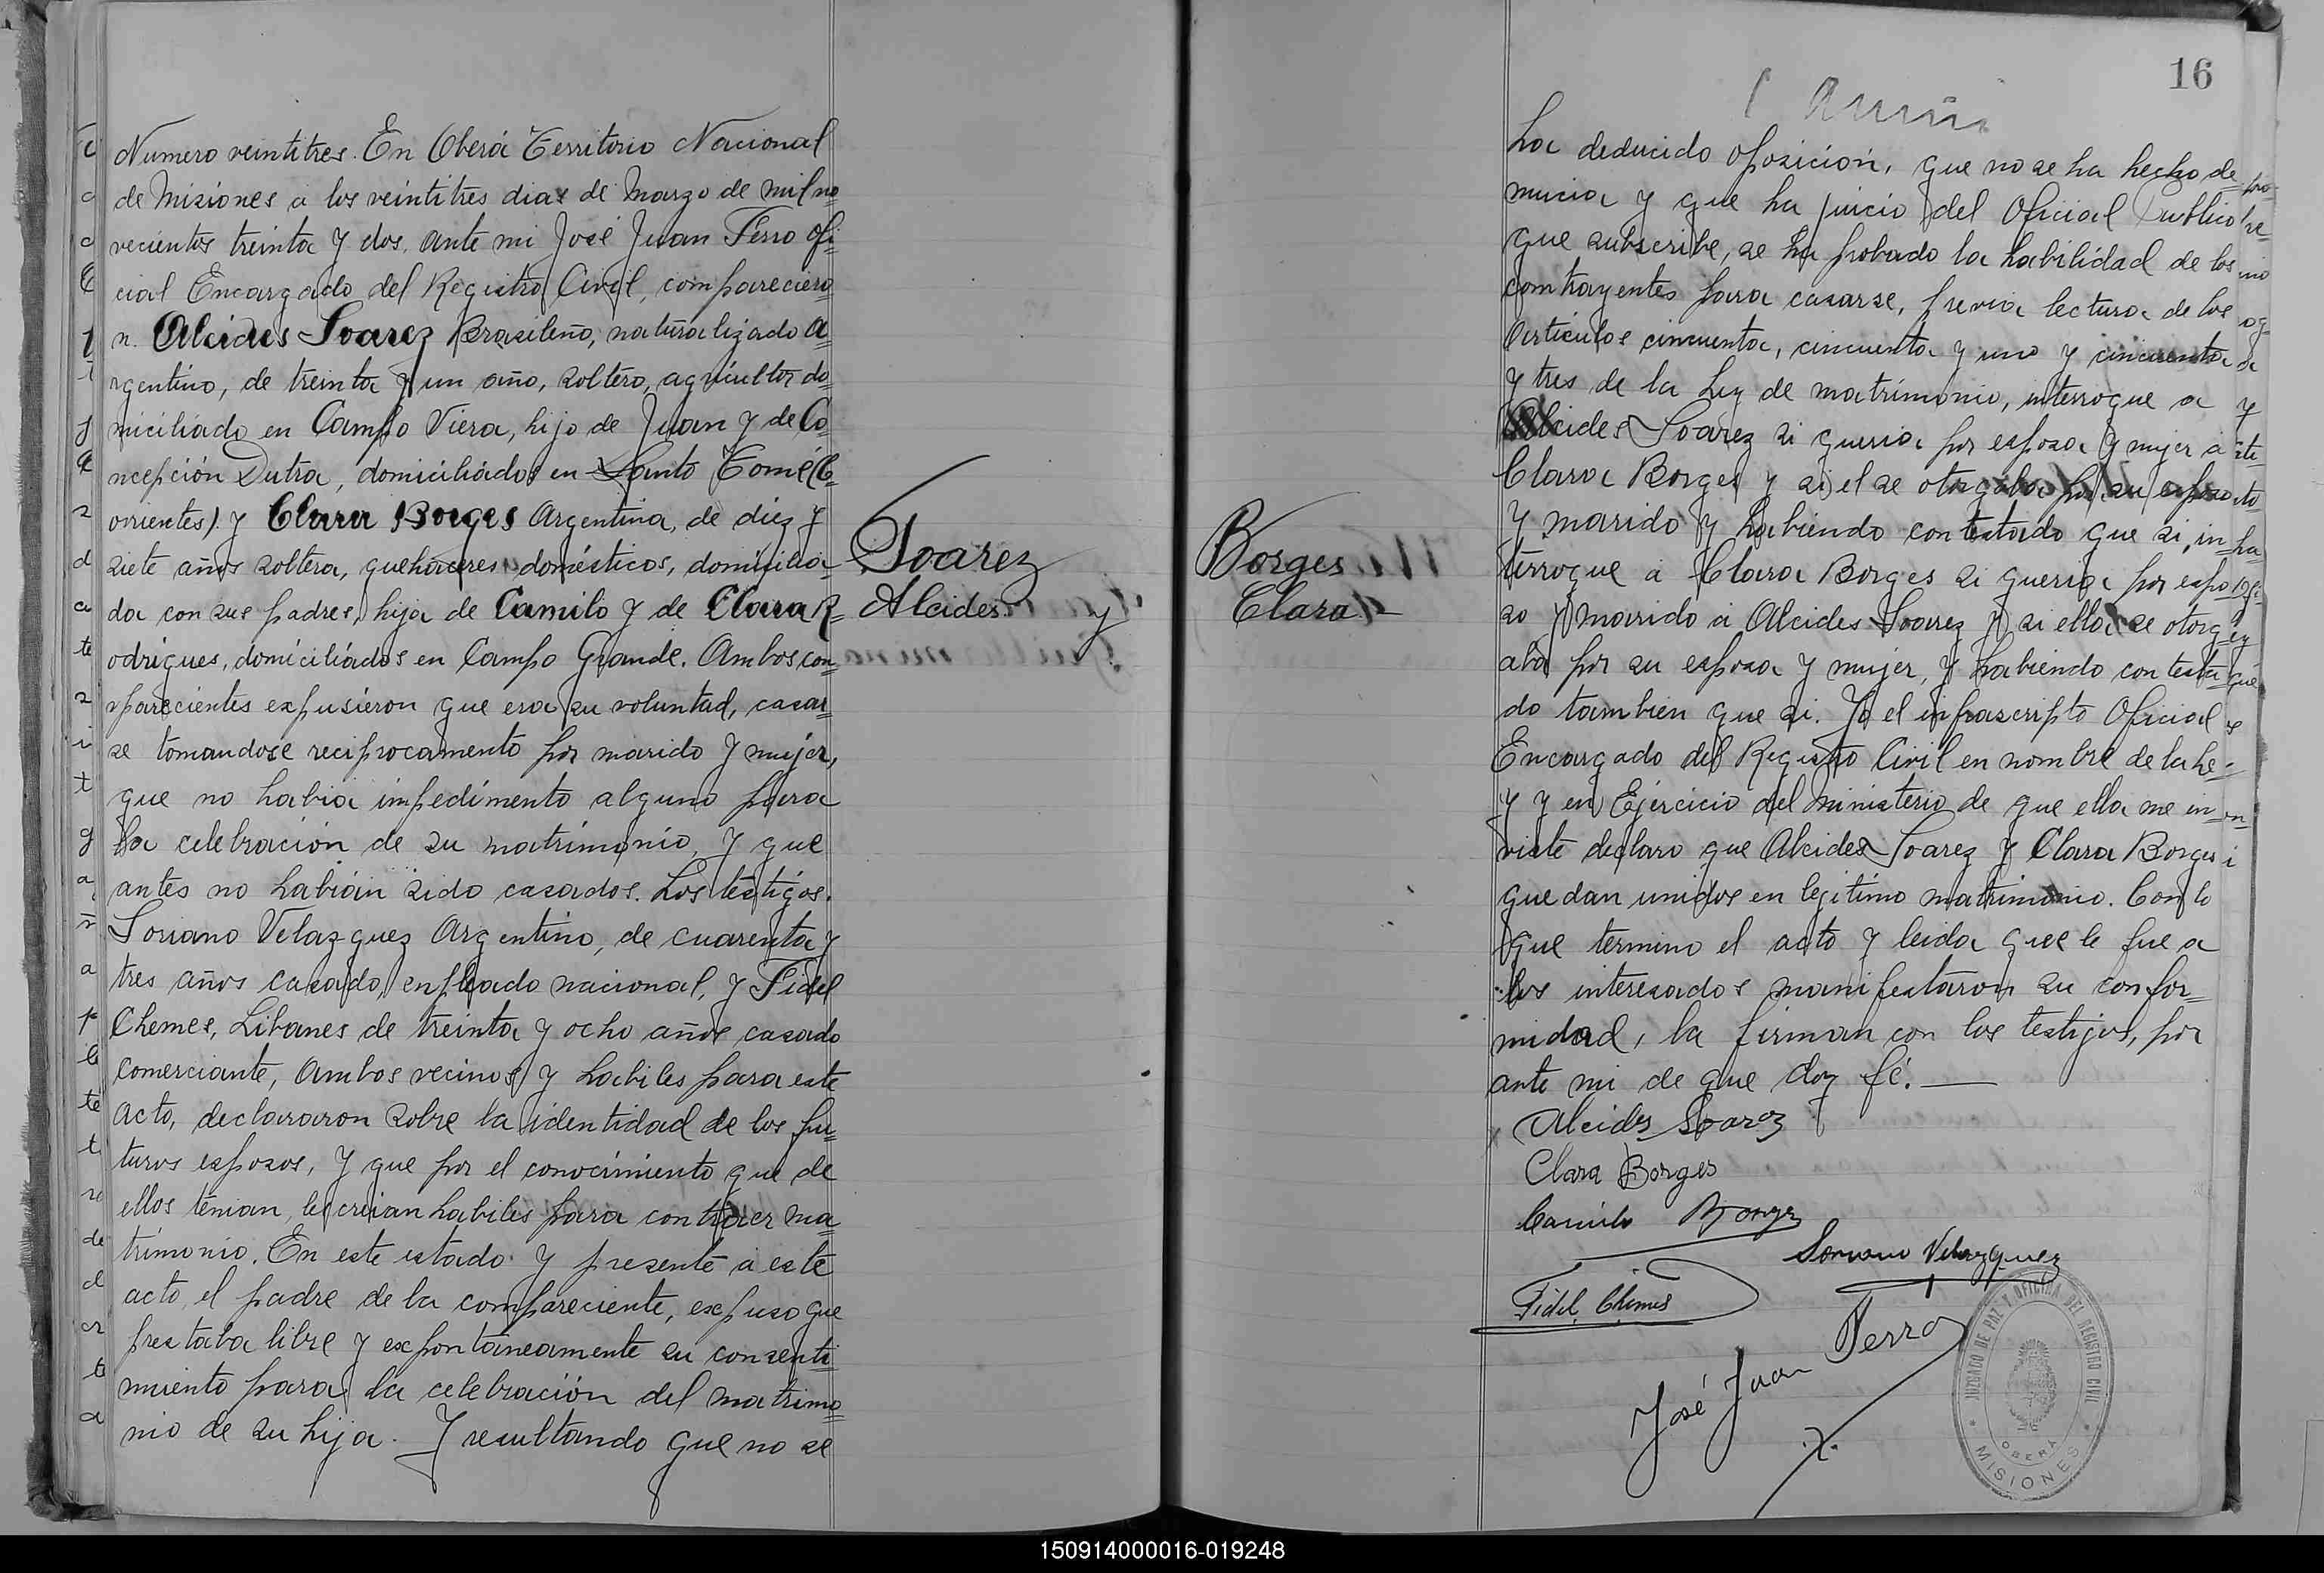 Numero veintitres. En Oberá Territorio Nacional
de Misiones a los veintitres dias de Marzo de mil no=
vecientos treinta y dos, ante mi José Juan Ferro ofi=
cial Encargado del Registro Civil, compareciero=
n. Alcides Soarez Brasileño, naturalizado A=
rgentino, de treinta y un año, soltero, agricultor do=
miciliado en Campo Viera, hijo de Juan y de Co=
ncepción Dutra, domiciliados en Santo Tomé (C=
orrientes). y Clara Borges Argentina, de diez y
siete años soltera, quehaceres domésticos, domicilia=
da con sus padres, hija de Camilo y de Clara R=
odrigues, domiciliados en Campo Grande. Ambos com=
parecientes expusieron que era su voluntad, casar=
se tomandose reciprocamento por marido y mujer,
que no habia impedimento alguno para
la celebración de su matrimonio, y que
antes no habian sido casados. Los testigos.
Soriano Velazquez Argentino, de cuarenta y
tres años casado, empleado nacional, y Fidel
Chemes, Libanes de treinta y ocho años casado
comerciante, Ambos vecinos y habiles para este
acto, declararon sobre la identidad de los fu=
turos esposos, y que por el conocimiento que de
ellos tenian, les creian habiles para contraer ma=
trimonio. En este estado y presente a este
acto, el padre de la compareciente, expuso que
prestaba libre y expontáneamente su consenti=
miento para la celebración del matrimo=
nio de su hija. Y resultando que no se
Soarez
Alcides y
Borges
Clara
16
ha deducido oposición, que no se ha hecho de=
nuncia y que ha juicio del Oficial Publico
que subscribe, se ha probado la habilidad de los
contrayentes para casarse, previa lectura de los
Artículos cincuenta, cincuenta y uno y cincuenta
y tres de la Ley de matrimonio, interrogue a
Alcides Soarez si queria por esposa y mujer a
Clara Borges y si el se otorgaba por su esposo
y marido y habiendo contestado que si, in=
terrogue a Clara Borges si queria por espo=
so y marido a Alcides Soarez y si ella se otorg=
aba por su esposa y mujer, y habiendo contesta=
do tambien que si. Yo el infrascripto Oficial
Encargado del Registro Civil en nombre de la Le=
y y en Ejercicio del Ministerio de que ella me in=
viste declaro que Alcides Soarez y Clara Borges
quedan unidos en legitimo matrimonio. Con lo
que termino el acto y leida que le fue a
los interesados manifestaron su confor=
midad, la firman con los testigos, por
ante mi de que doy fé.
Alcides Soarez
Clara Borges
Camilo Borges
Soriano Velazquez
Fidel Chemes
José Juan Ferro
JUZGADO DE PAZ Y OFICINA DEL REGISTRO CIVIL
OBERÁ
MISIONES
150914000016-019248